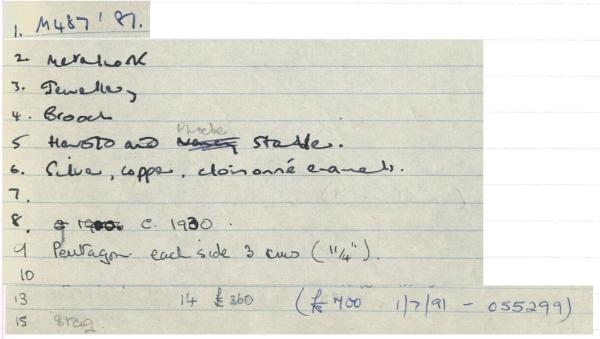 1. M487'87.
2. Metalwork
3. Jewellery
4. Brooch
5 Harold and Phoebe Stabler.
6. Silver, copper, cloisonné enamels.
7.
8. c. 1930.
9 Pentagon each side 3 cms (1 1/4").
10
13 14 £360 (£700 1/7/91 - 055299)
15